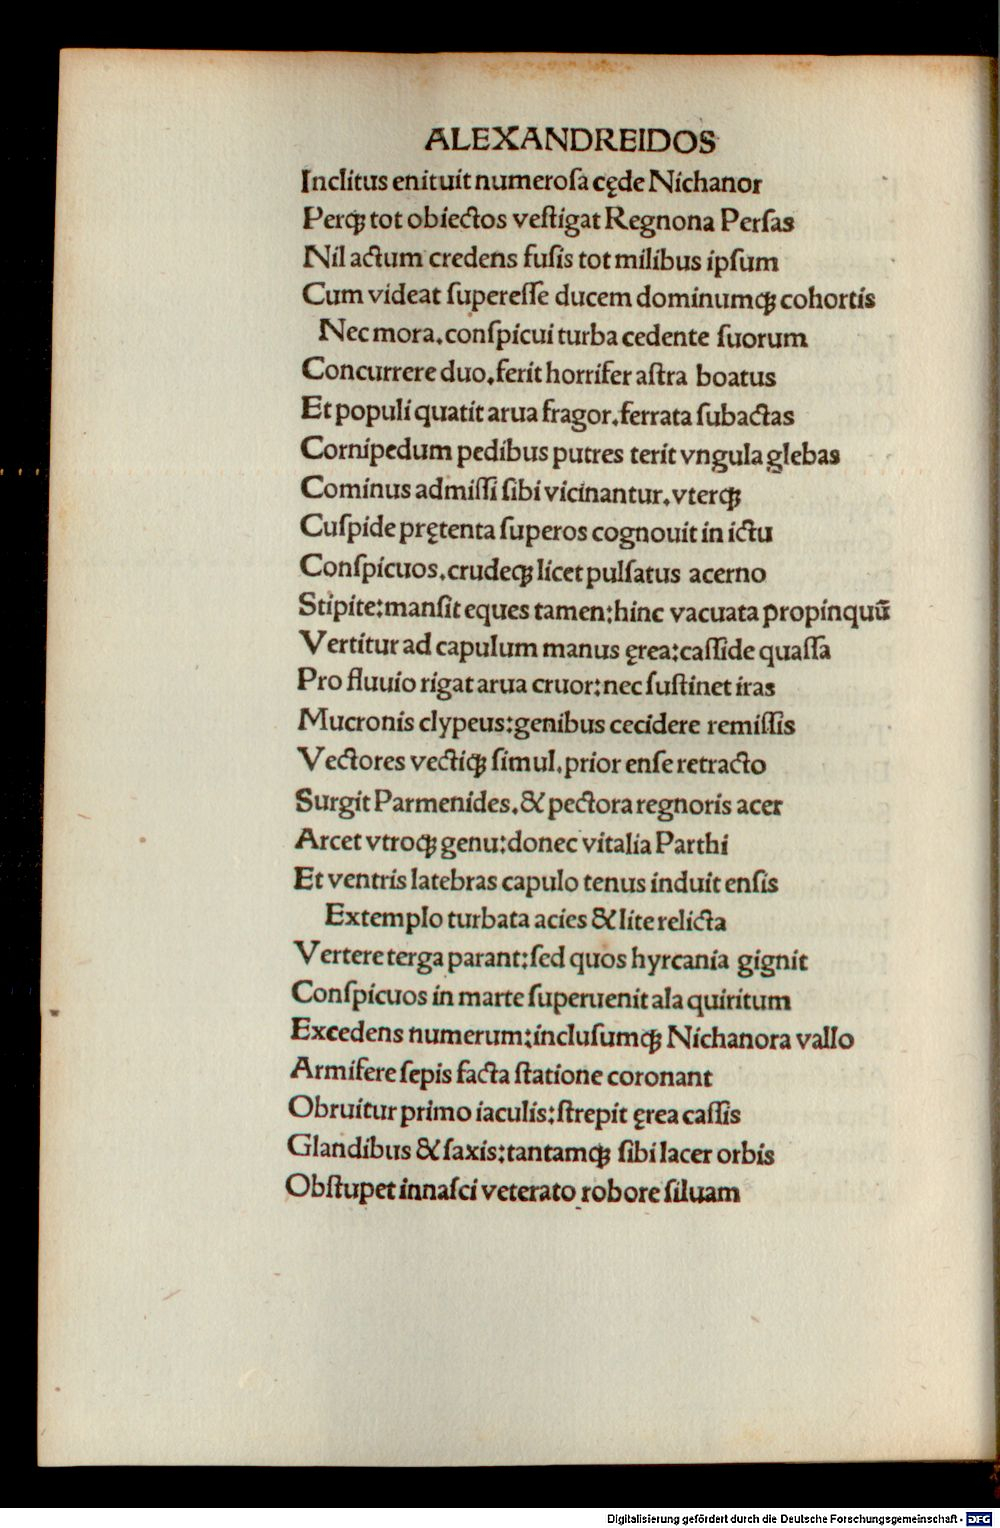 ALEXANDREIDOS
Inclitus enituit numeroſa cęde Nichanor
Perqꝫ tot obiectos veſtigat Regnona Perſas
Nil actum credens fuſis tot milibus ipſum
Cum videat ſupereſſe ducem dominumqꝫ cohortis
Nec mora.conſpicui turba cedente ſuorum
Concurrere duo.ferit horrifer aſtra boatus
Et populi quatit arua fragor.ferrata ſubactas
Cornipedum pedibus putres terit vngula glebas
Cominus admiſſi ſibi vicinantur.vterqꝫ
Cuſpide prętenta ſuperos cognouit in ictu
Conſpicuos.crudeqꝫ licet pulſatus acerno
Stipite:manſit eques tamen:hinc vacuata propinquū
Vertitur ad capulum manus ęrea:caſſide quaſſa
Pro fluuio rigat arua cruor:nec ſuſtinet iras
Mucronis clypeus:genibus cecidere remiſſis
Vectores vectiqꝫ ſimul.prior enſe retracto
Surgit Parmenides.& pectora regnoris acer
Arcet vtroqꝫ genu:donec vitalia Parthi
Et ventris latebras capulo tenus induit enſis
Extemplo turbata acies & lite relicta
Vertere terga parant:ſed quos hyrcania gignit
Conſpicuos in marte ſuperuenit ala quiritum
Excedens numerum:incluſumqꝫ Nichanora vallo
Armifere ſepis facta ſtatione coronant
Obruitur primo iaculis:ſtrepit ęrea caſſis
Glandibus & ſaxis:tantamqꝫ ſibi lacer orbis
Obſtupet innaſci veterato robore ſiluam
Digitalisierung gefördert durch die Deutsche Forschungsgemeinschaft - DFG